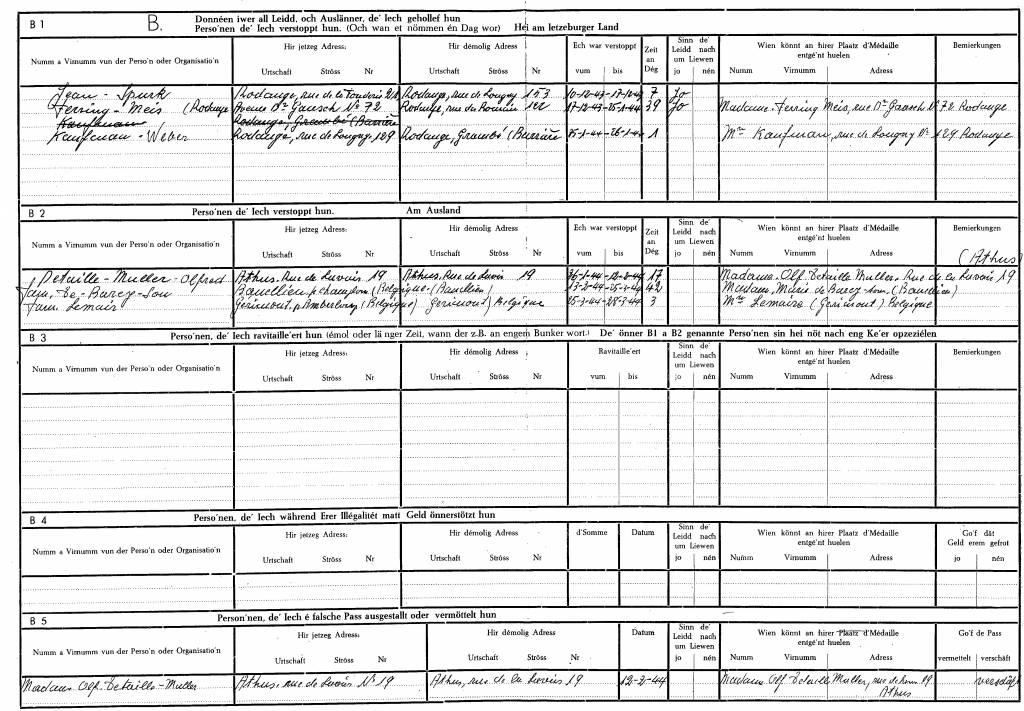 B 1 B. Donnéen iwer all Leidd, och Auslänner, de' Iech gehollef hun
Perso'nen de' Iech verstoppt hun. (Och wan et nömmen én Dag wor) Hei am letzeburger Land
Hir jetzeg Adress: Hir démolig Adress Ech war verstoppt Zeit an Dég Sinn de' Leidd nach um Liewen Wien könnt an hirer Plaatz d'Médaille entgé'nt huelen Bemierkungen
Numm a Virnumm vun der Perso'n oder Organisatio'n Urtschaft Ströss Nr Urtschaft Ströss Nr vum bis jo nén Numm Virnumm Adress
Jean - Spurk Rodange, rue de la Fonderie Rodange, rue de Longwy 153 10-12-43-17-12-43 7 Jo
Ferring - Meis (Rodange Avenue Dr Gaasch No 72 Rodange, rue du 17-12-43-25-1-44 39 Jo Madame Ferring Meis, rue Dr Gaasch No 72 Rodange
Kaufmann Rodange,
Kaufman - Weber Rodange, rue de Longwy, 129 Rodange, 25-1-44-26-1-44 1 Me Kaufman, rue de Longwy No 129 Rodange
B 2 Perso'nen de' Iech verstoppt hun. Am Ausland
Hir jetzeg Adress: Hir démolig Adress Ech war verstoppt Zeit an Dég Sinn de' Leidd nach um Liewen Wien könnt an hirer Plaatz d'Médaille entgé'nt huelen Bemierkungen
Numm a Virnumm vun der Perso'n oder Organisatio'n Urtschaft Ströss Nr Urtschaft Ströss Nr vum bis jo nén Numm Virnumm Adress
(Athus)
Detaille - Muller - Alfred Athus. Rue de Lavoir 19 Athus. Rue de Lavoir 19 26-1-44 17 Madame. Alf. Detaille Muller. Rue de la Lavoir 19
Fam. De - Barcy - Son (Belgique) 13-2-44-25-3-44 42 Madam, Marie de Barcy
Fam. Lemair Gérimont, p. (Belgique) Gerimont) Belgique 25-3-44-28-3-44 3 Me Lemaire (Gerimont) Belgique
B 3 Perso'nen, de' Iech ravitaille'ert hun (émol oder länger Zeit, wann der z.B. an engem Bunker wort.) De' önner B1 a B2 genannte Perso'nen sin hei nöt nach eng Ke'er opzeziélen
Hir jetzeg Adress: Hir démolig Adress Ravitaille'ert Sinn de' Leidd nach um Liewen Wien könnt an hirer Plaatz d'Médaille entgé'nt huelen Bemierkungen
Numm a Virnumm vun der Perso'n oder Organisatio'n Urtschaft Ströss Nr Urtschaft Ströss Nr vum bis jo nén Numm Virnumm Adress
B 4 Perso'nen, de' Iech während Erer Illégalitét matt Geld önnerstötzt hun
Hir jetzeg Adress: Hir démolig Adress d'Somme Datum Sinn de' Leidd nach um Liewen Wien könnt an hirer Plaatz d'Médaille entgé'nt huelen Go'f dät Geld erem gefrot
Numm a Virnumm vun der Perso'n oder Organisatio'n Urtschaft Ströss Nr Urtschaft Ströss Nr jo nén Numm Virnumm Adress jo nén
B 5 Person'nen, de' Iech é falsche Pass ausgestallt oder vermöttelt hun
Hir jetzeg Adress: Hir démolig Adress Datum Sinn de' Leidd nach um Liewen Wien könnt an hirer Plaatz d'Médaille entgé'nt huelen Go'f de Pass
Numm a Virnumm vun der Perso'n oder Organisatio'n Urtschaft Ströss Nr Urtschaft Ströss Nr jo nén Numm Virnumm Adress vermettelt verschäft
Madame Alf. Detaille - Muller Athus. rue de Lavoir No 19 Athus, rue de la Lavoir 19 12-2-44 Madame Alf Detaille Muller, rue de 19
Athus